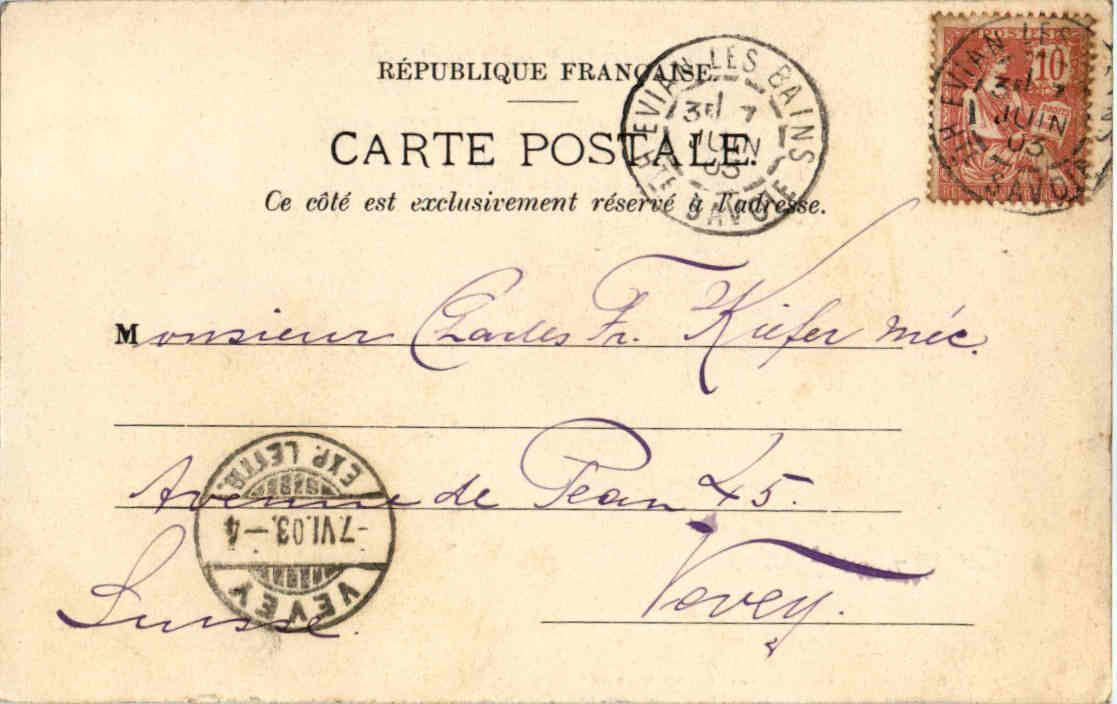 RÉPUBLIQUE FRANÇAISE.
CARTE POSTALE.
Ce côté est exclusivement réservé à l'adresse.
EVIAN LES BAINS
3E 7
JUIN
03
HTE SAVOIE
POSTES
10
EVIAN LES BAINS
3E 7
JUIN
03
HTE SAVOIE
Monsieur Charles Fr. Kiefer méc.
Avenue de Plan 45.
Vevey.
Suisse.
VEVEY
-7.VI.03.-4
EXP. LETTR.